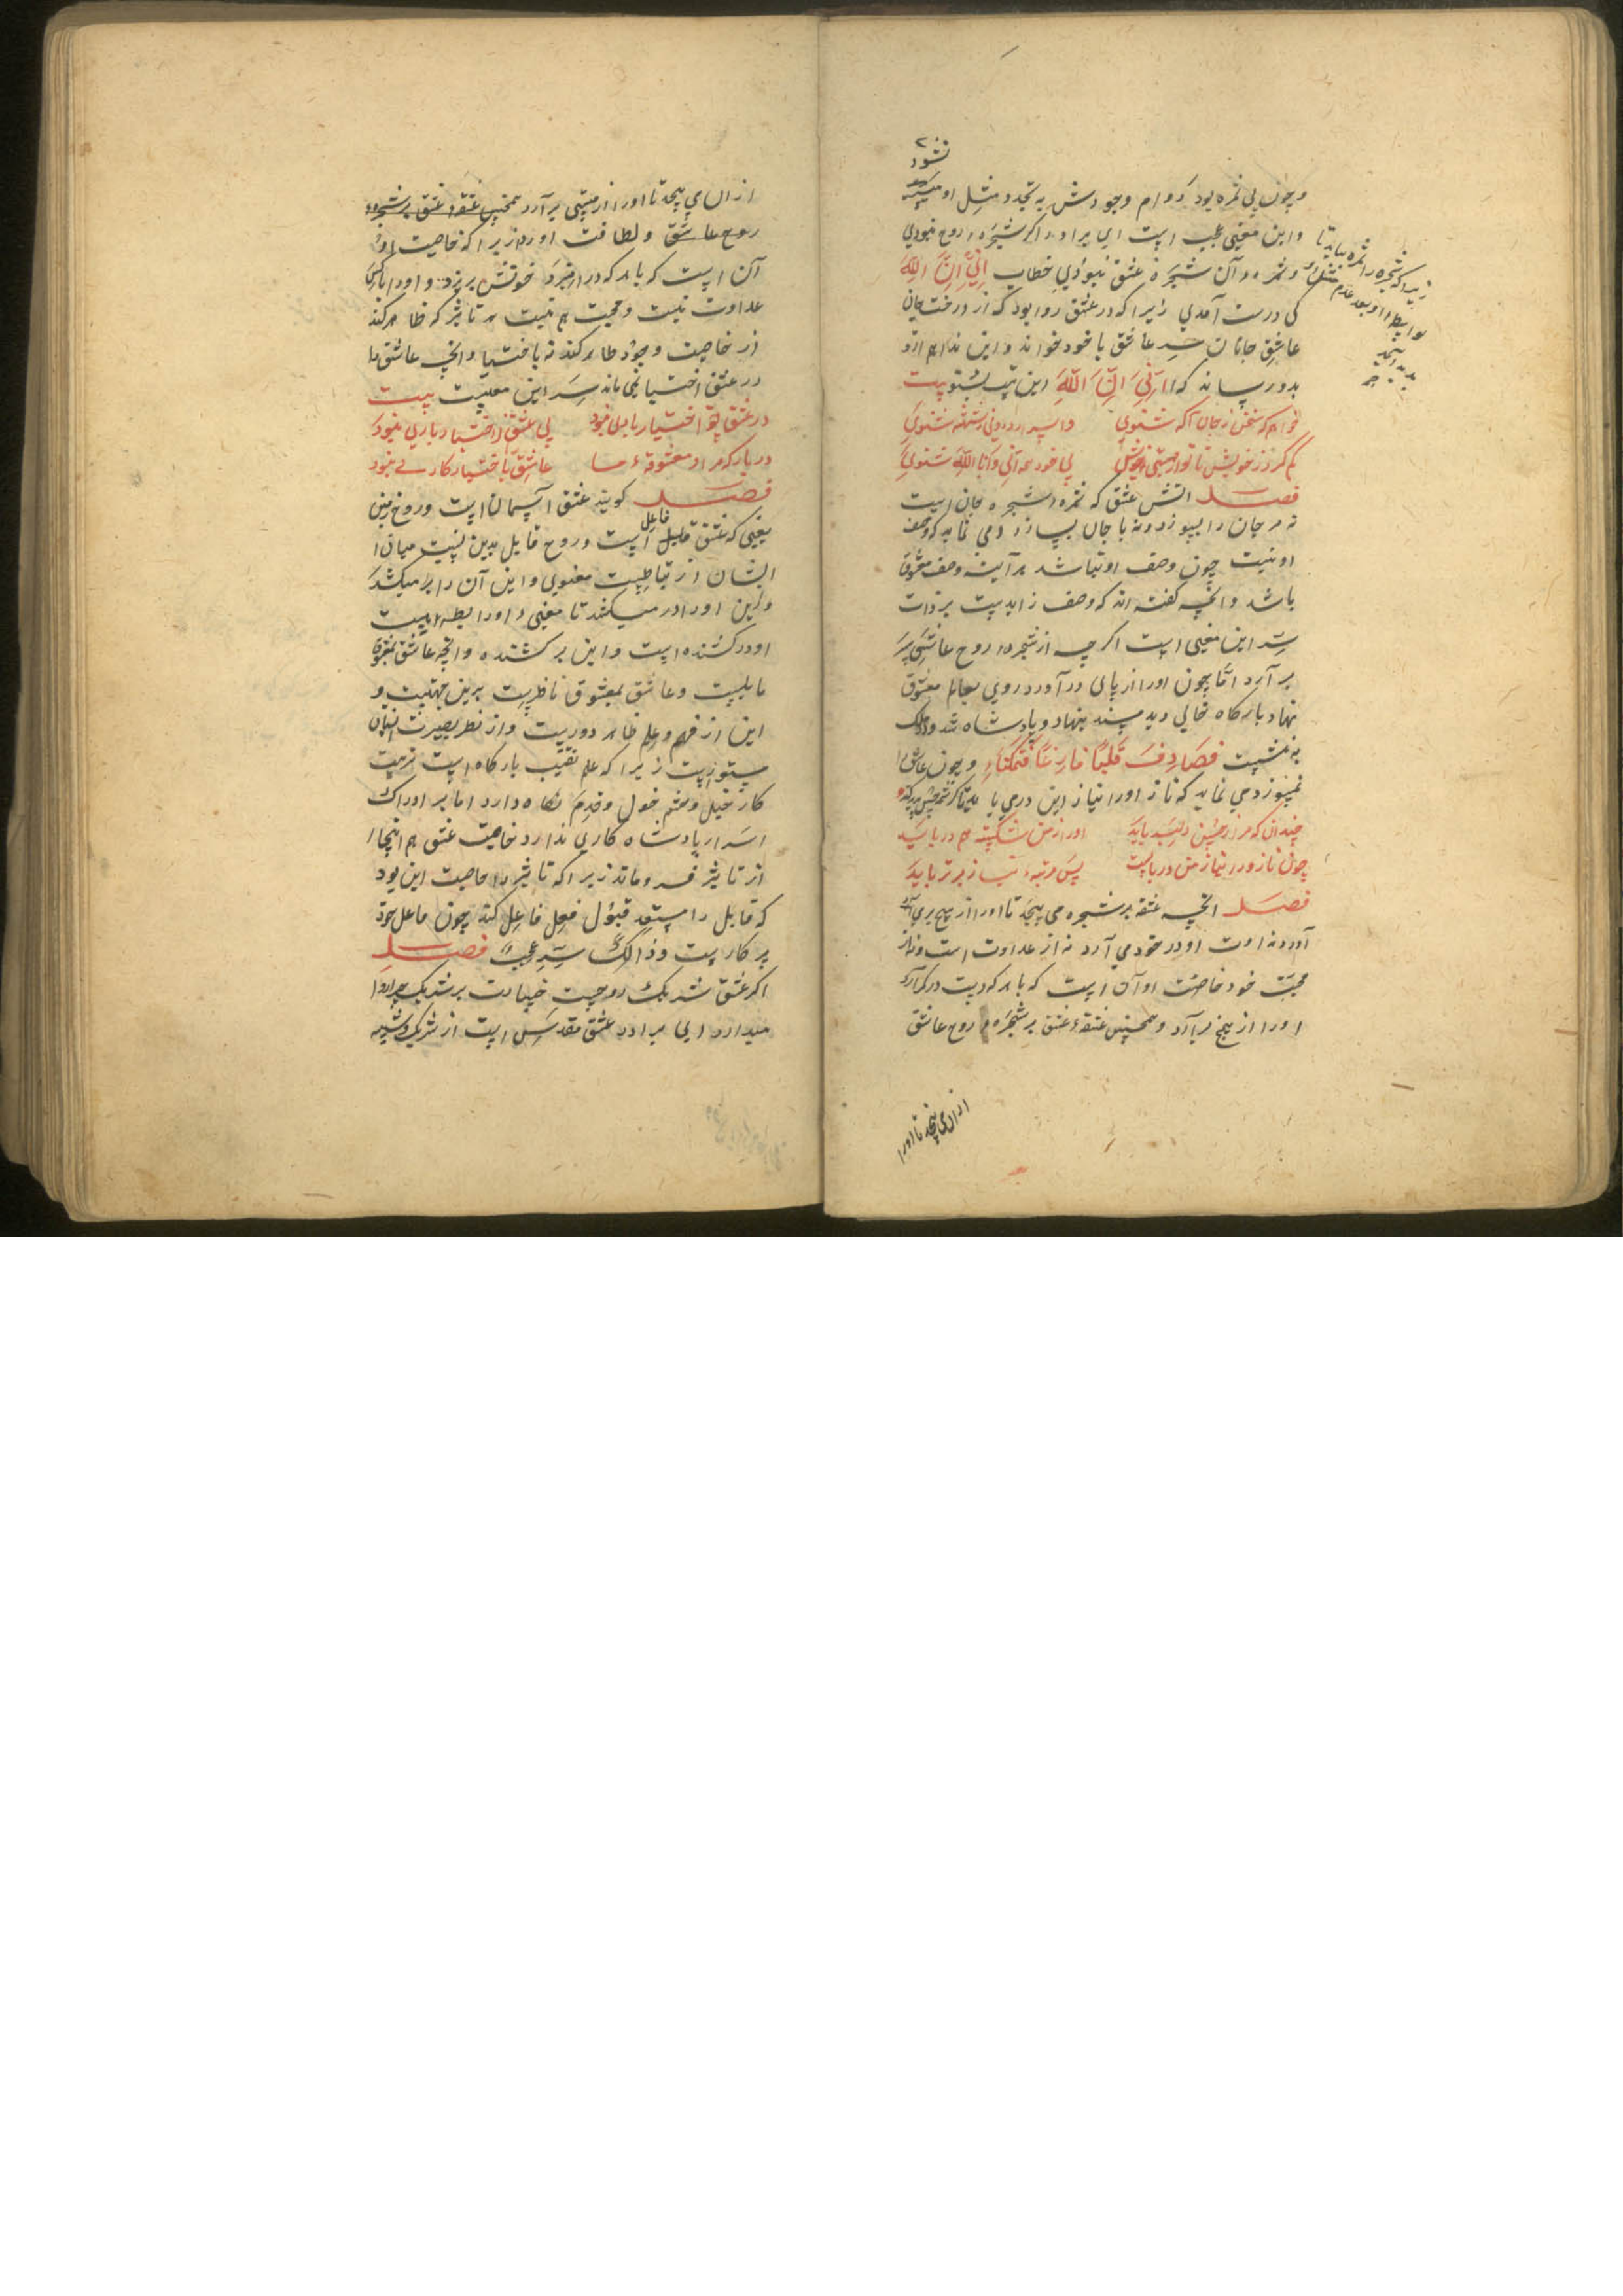 نشود
و چون بی ثمره بود دوام وجودش به تجدد مثل او
و این معنی عجب است ای برادر اگر شجره روح نبودی
و ثمره و آن شجره عشق نبودی خطاب اِنِّي اَنَا اللّٰه
کی درست آمدی زیرا که در عشق روا بود که از درخت جان
عاشق جانان سر عاشق با خود خواند و این ندا هم ازو
بدو رساند که اِنّی اَنَا اللّٰه این بیت بشنو بیت
خواهم که سخن ز جان آگه شنوی
کم گرد ز خویش تا تو از هستی خویش بی خود همه انی و انا الله شنوی
فصل آتش عشق که ثمره شجره جان است
نه مر جان را بسوزد و نه با جان بسازد و می نماید که وصف
او نیست چون وصف او نباشد هر آینه وصف معشوق
باشد و انچه گفته اند که وصف زاید نیست بر ذات
سر این معنی است اگر چه از شجره روح عاشق سر
بر آرد اما چون او را از پای در آورد روی بعالم معشوق
نهاد بارگاه خالی دید مسند بنهاد و پادشاه شد و در ملک
بنشست فَصَادَفَ قَلْبًا فَارِغًا فَتَمَكَّنَا و چون عاشق را
بسوزد می نماید که ناز او را نیاز این در می باید
چندان که مرا ز حسن دلبر باید او را ز من شکسته هم در باید
چون ناز ورا نیاز من دربایست پس مرتبه نیاز برتر باید
فصل انچه عشقه بر شجره می پیچد تا او را از بیخ بر می آرد
آورد نه اوت او در خود می آرد نه از عداوت است و نه از
محبت خود خاصیت او آن است که با هر که دست در کمر آرد
او را از بیخ بر آرد و همچنین عشقه عشق بر شجره روح عاشق
از ان می پیچد تا او را
زیرا که شجره را ثمره باید تا
بواسطه او بعد عدم مثل او
پدید آید
از ان می پیچد تا او را از هستی بر آرد همچنین عشقه عشق بر شجره
روح عاشق و لطافت او دارد زیرا که خاصیت او
آن است که با هر که در آمیزد خونش بریزد و او را با کسی
عداوت نیست و محبت هم نیست هر تاثیر که ظاهر کند
از خاصیت وجود ظاهر کند نه باختیار و انچه عاشق را
در عشق اختیار نمی ماند سر این معنیست بیت
در عشق تو اختیار با دل نبود بی عشق را اختیار باری نبود
در بار که مراد معشوقه رسا عاشق باختیار کاری نبود
فصل گویند عشق آسمان است و روح زمین
یعنی که عشق فاعل است و روح قابل بدین نسبت میان
ایشان ارتباطیست معنوی و این آن را بر میکشد
و این او را در میکشد تا معنی او رابطه است
او در کشنده است و این بر کشنده و انچه عاشق بمعشوق
مایلست و عاشق بمعشوق ناظرست برین جهتست و
این از فهم و علم ظاهر دورست و از نظر بصیرت انسان
مستورست زیرا که علم نقیب بارگاه است ترتیب
کار خیل و حشم خول و خدم نگاه دارد اما بر ادراک
اسرار پادشاه کاری ندارد خاصیت عشق هم اینجا
از تاثیر فرو ماند زیرا که تاثیر را خاصیت این بود
که قابل را مستعد قبول فعل فاعل کند چون فاعل خود
بر کارست و ذالک سر عجب فصل
اگر عشق شریک روحست خسارت بر شریک چرا روا
میدارد ای برادر عشق مقدس است از شریک و شبیه